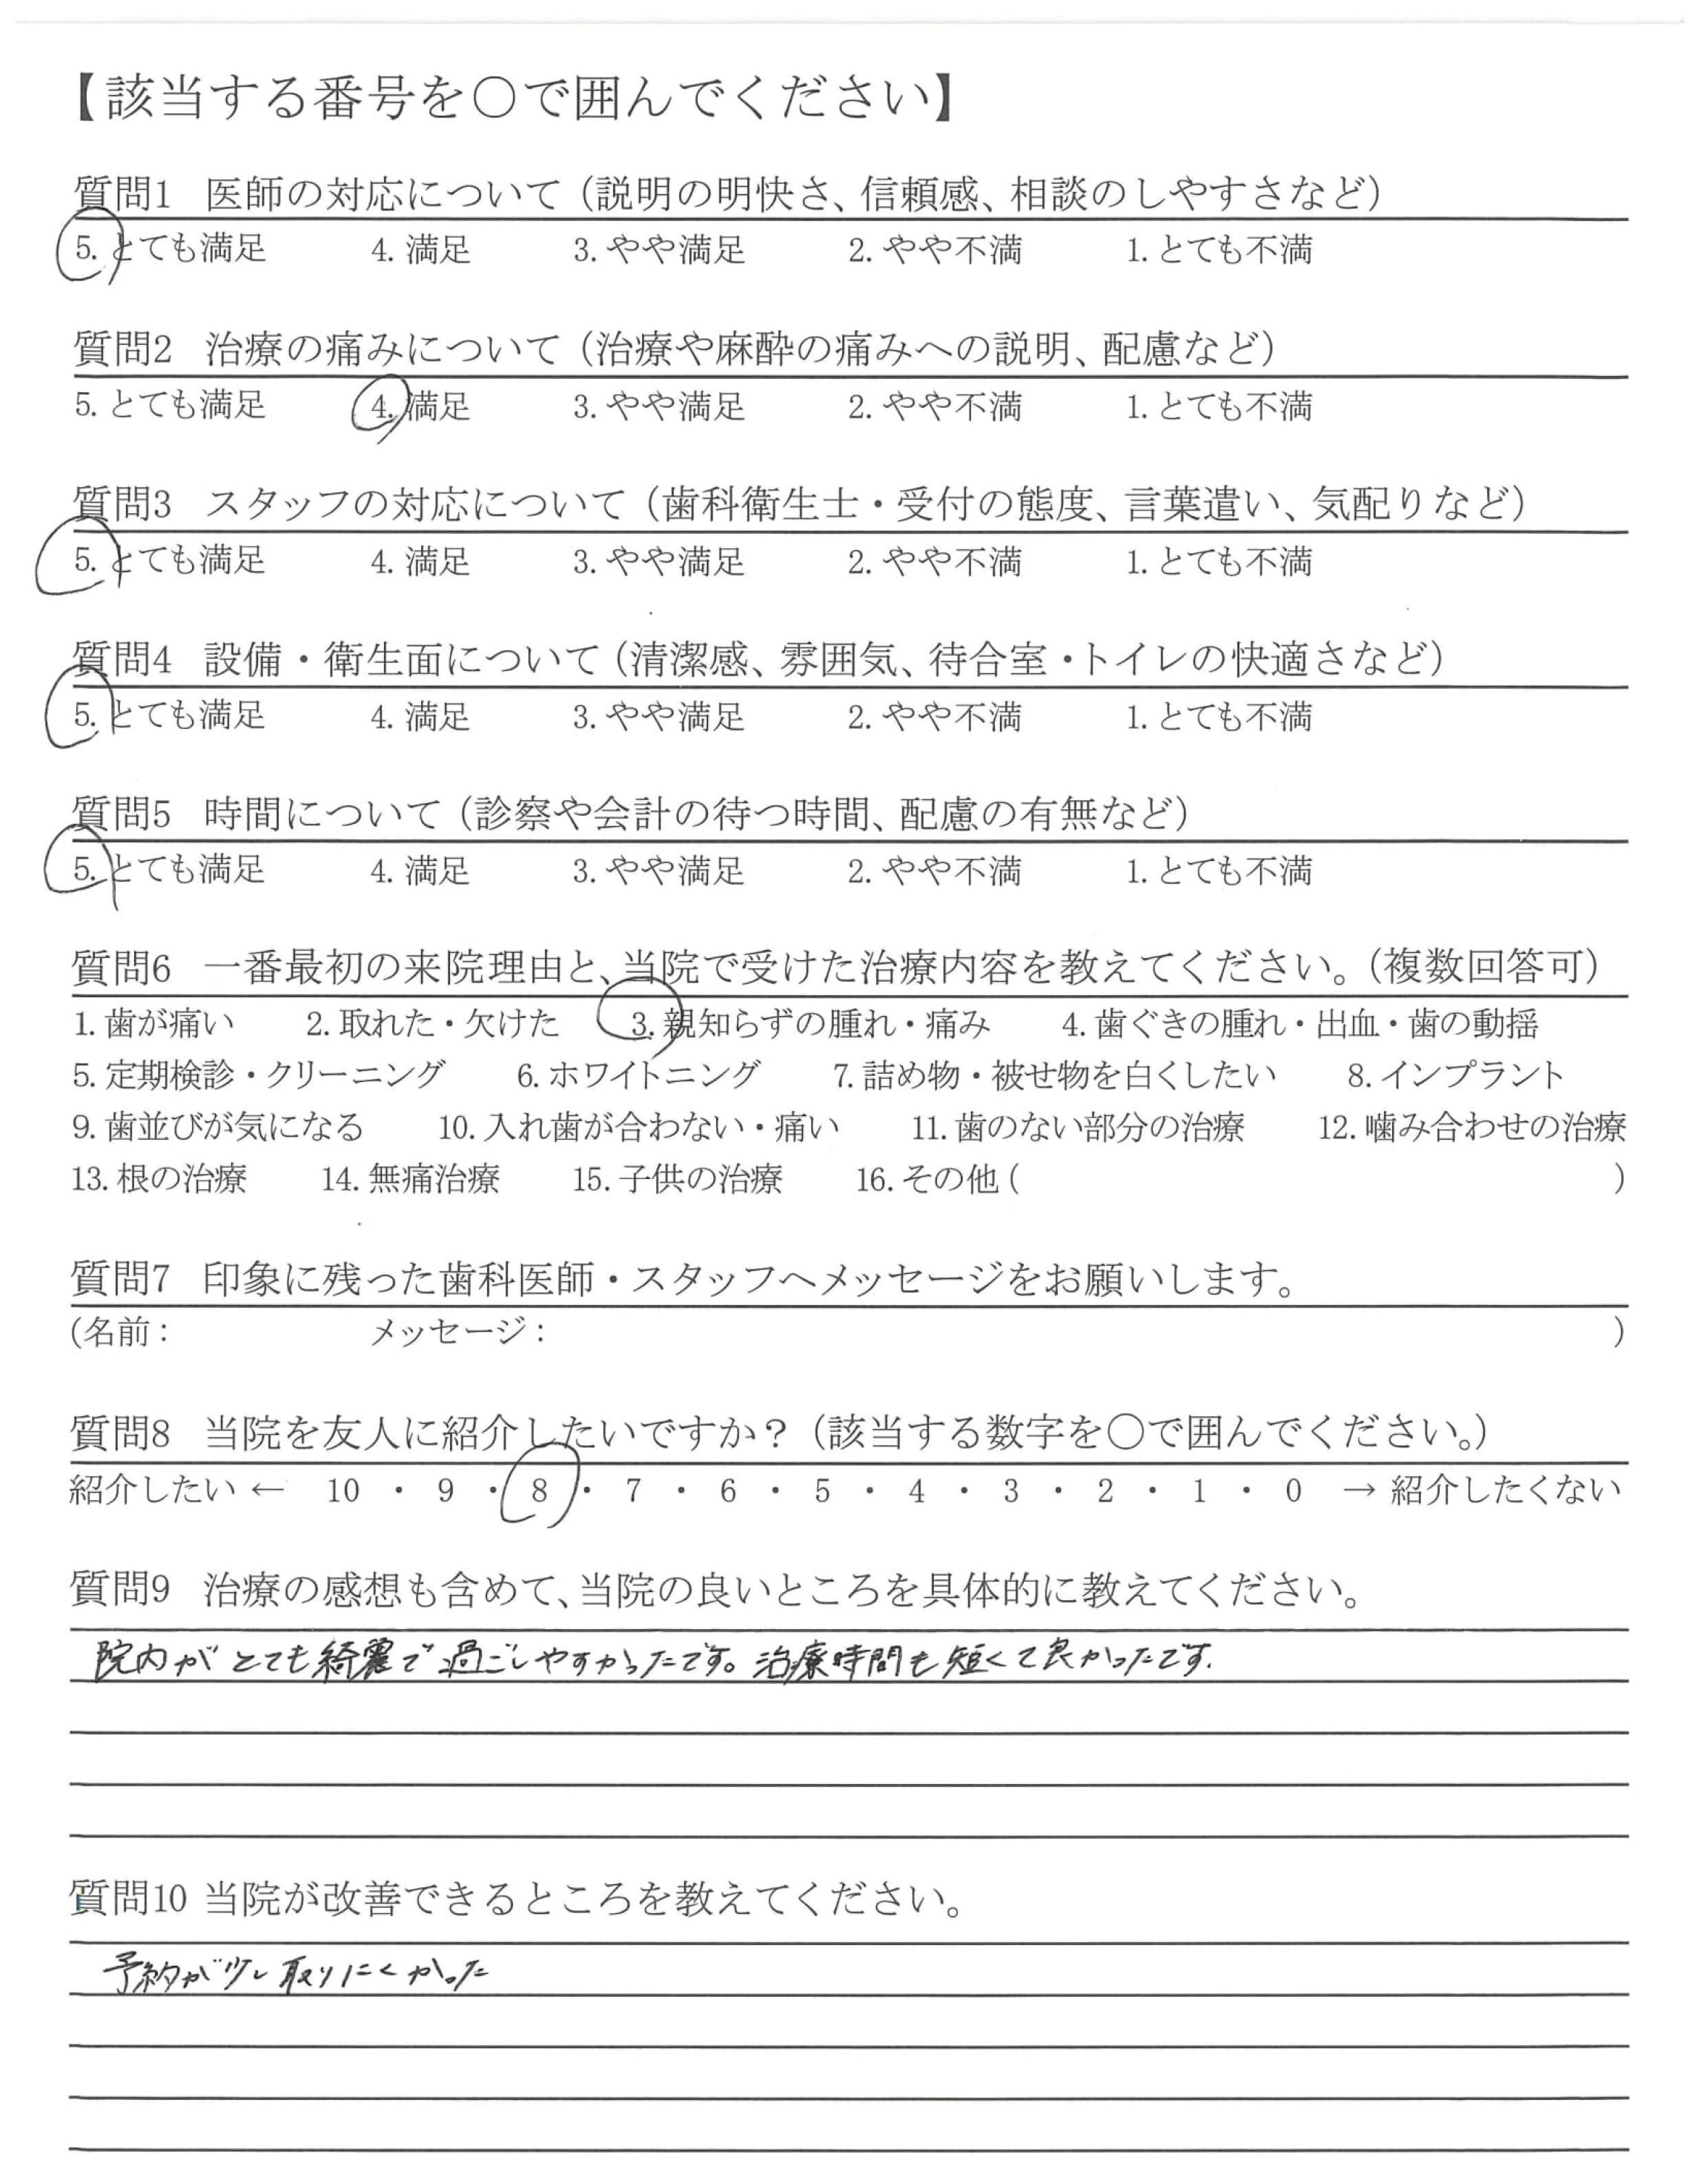 【該当する番号を〇で囲んでください】
質問1 医師の対応について（説明の明快さ、信頼感、相談のしやすさなど）
5. とても満足 4. 満足 3. やや満足 2. やや不満 1. とても不満
質問2 治療の痛みについて（治療や麻酔の痛みへの説明、配慮など）
5. とても満足 4. 満足 3. やや満足 2. やや不満 1. とても不満
質問3 スタッフの対応について（歯科衛生士・受付の態度、言葉遣い、気配りなど）
5. とても満足 4. 満足 3. やや満足 2. やや不満 1. とても不満
質問4 設備・衛生面について（清潔感、雰囲気、待合室・トイレの快適さなど）
5. とても満足 4. 満足 3. やや満足 2. やや不満 1. とても不満
質問5 時間について（診察や会計の待つ時間、配慮の有無など）
5. とても満足 4. 満足 3. やや満足 2. やや不満 1. とても不満
質問6 一番最初の来院理由と、当院で受けた治療内容を教えてください。（複数回答可）
1. 歯が痛い 2. 取れた・欠けた 3. 親知らずの腫れ・痛み 4. 歯ぐきの腫れ・出血・歯の動揺
5. 定期検診・クリーニング 6. ホワイトニング 7. 詰め物・被せ物を白くしたい 8. インプラント
9. 歯並びが気になる 10. 入れ歯が合わない・痛い 11. 歯のない部分の治療 12. 噛み合わせの治療
13. 根の治療 14. 無痛治療 15. 子供の治療 16. その他 ( )
質問7 印象に残った歯科医師・スタッフへメッセージをお願いします。
(名前： メッセージ： )
質問8 当院を友人に紹介したいですか？（該当する数字を〇で囲んでください。）
紹介したい ← 10 ・ 9 ・ 8 ・ 7 ・ 6 ・ 5 ・ 4 ・ 3 ・ 2 ・ 1 ・ 0 → 紹介したくない
質問9 治療の感想も含めて、当院の良いところを具体的に教えてください。
院内がとても綺麗で過ごしやすかったです。治療時間も短くて良かったです.
質問10 当院が改善できるところを教えてください。
予約が少し取りにくかった